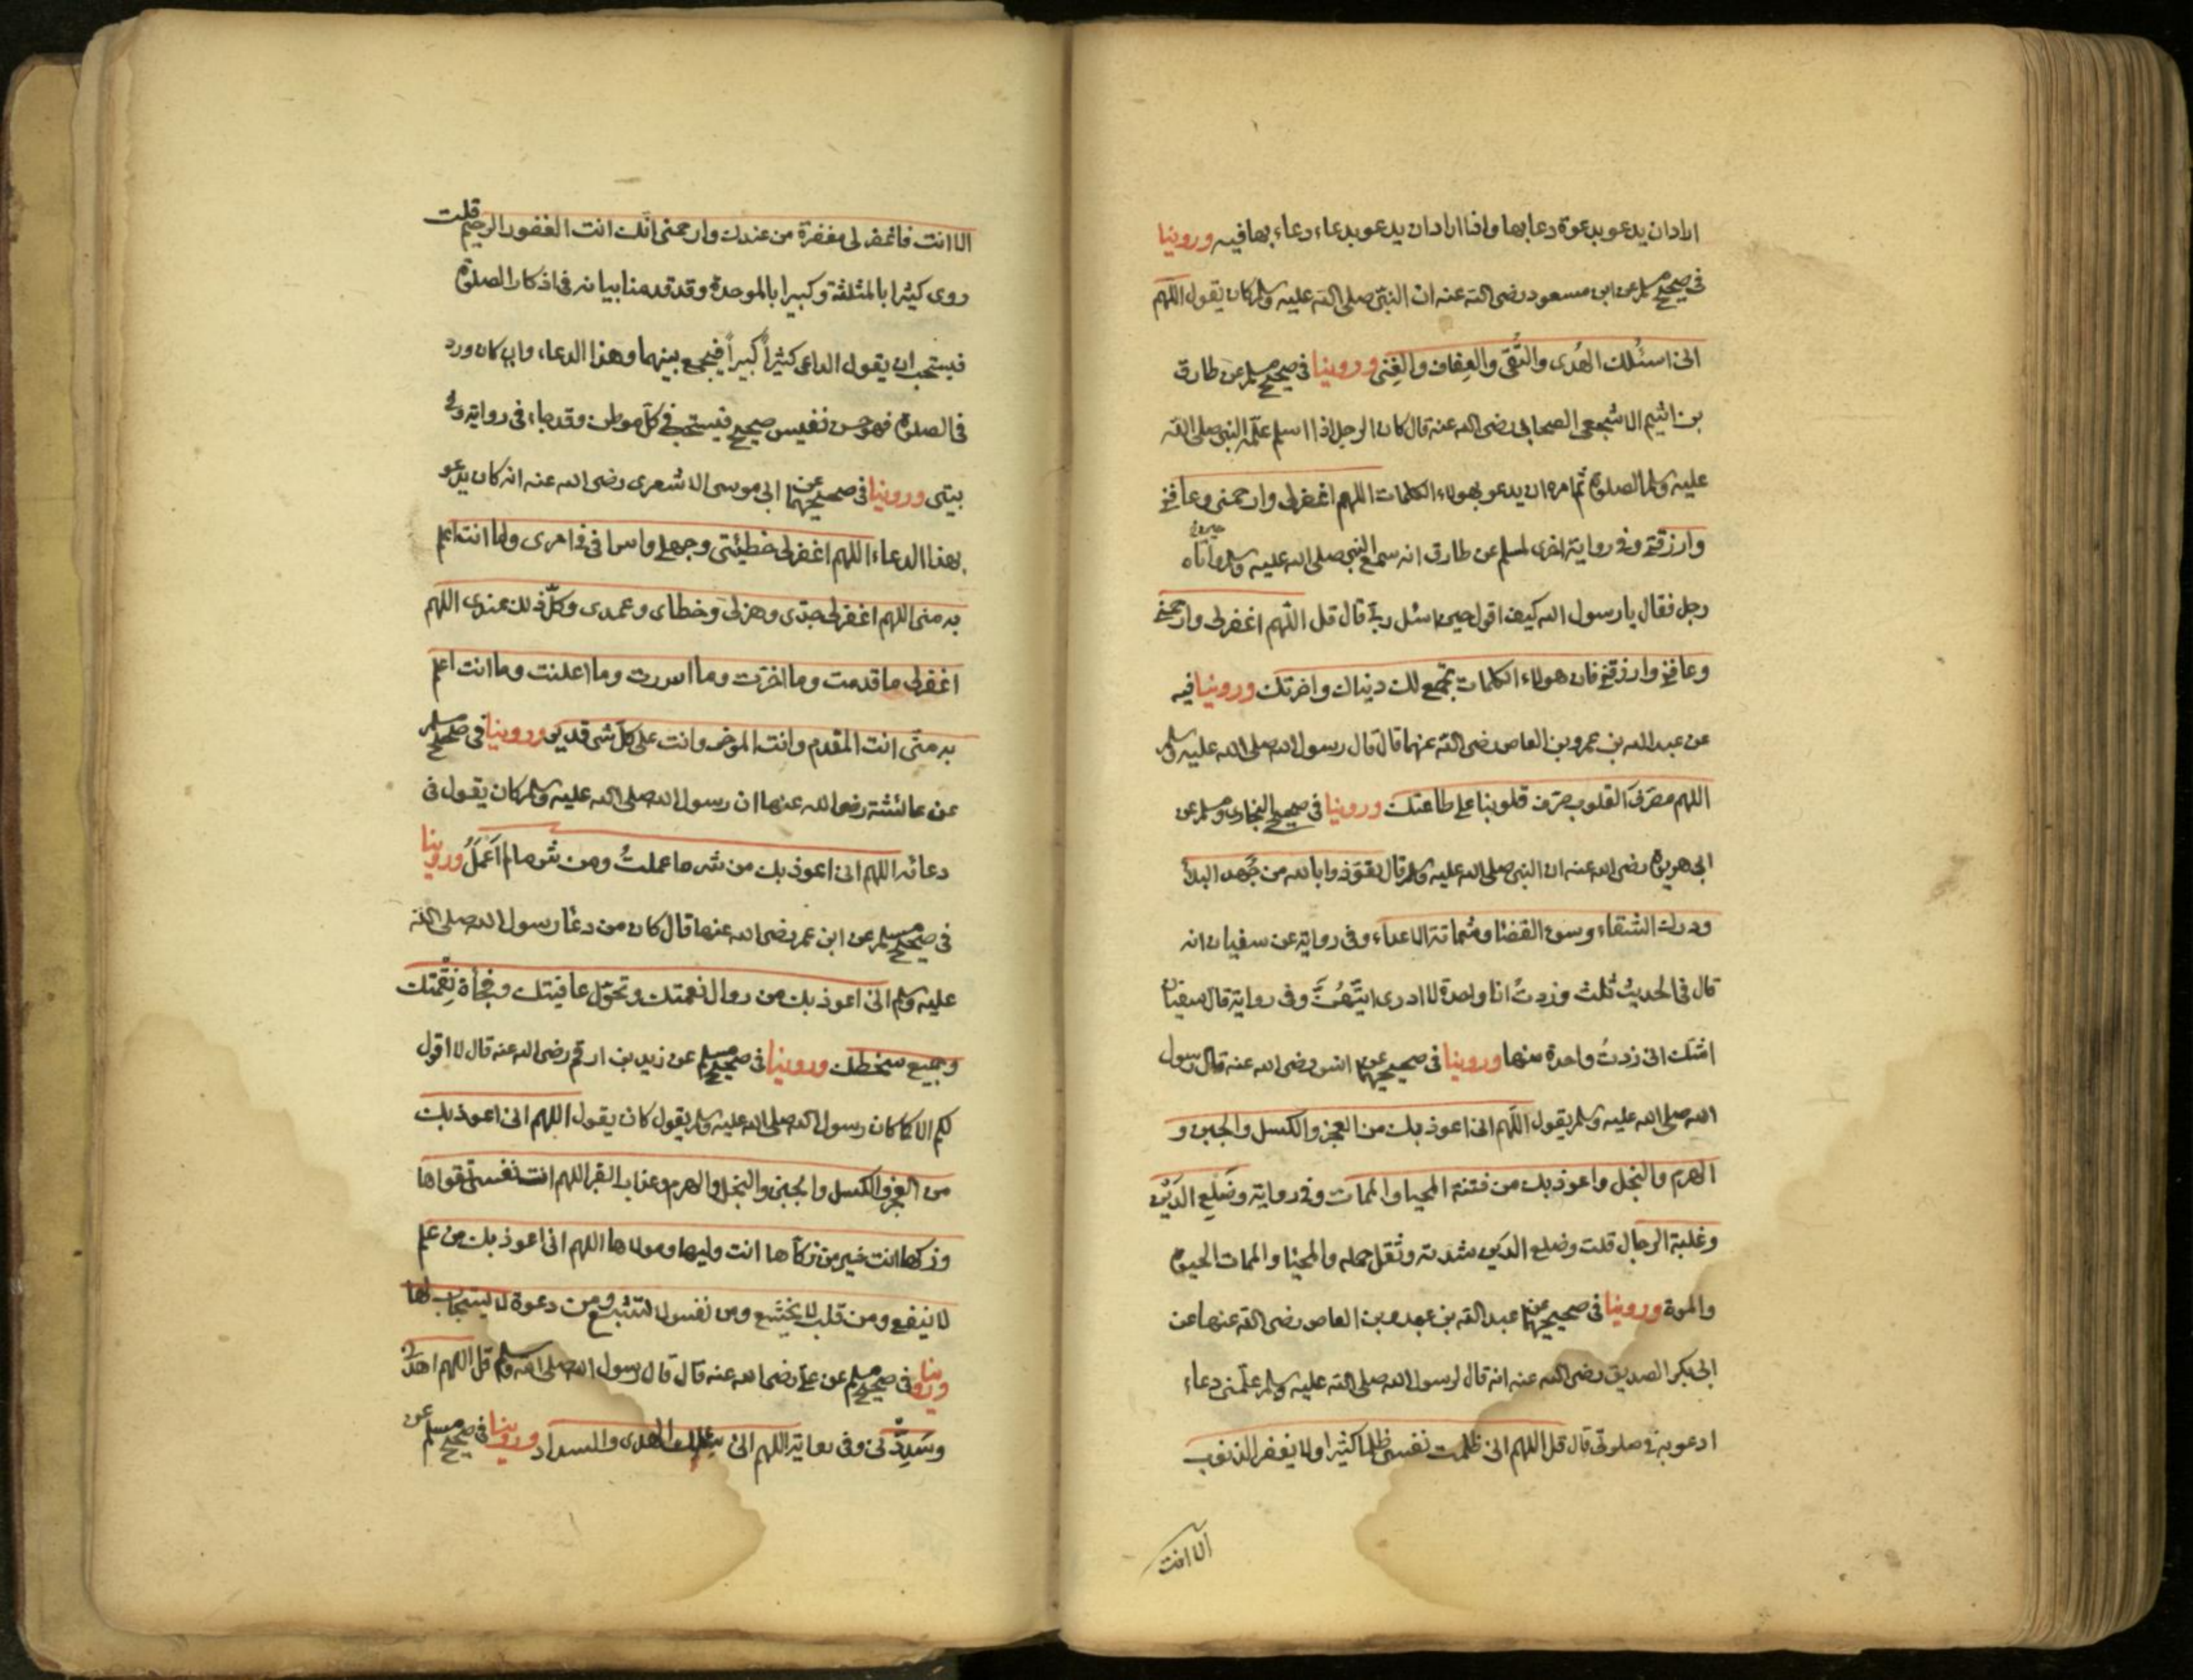 اراد ان يدعو بدعوة دعا بها واذا اراد ان يدعو بدعاء دعاء بها فيه وروينا
فى صحيح مسلم عن ابن مسعود رضى الله عنه ان النبى صلى الله عليه وسلم كان يقول اللهم
انى اسئلك الهُدى والتُّقى والعِفاف والغِنى وروينا فى صحيح مسلم عن طارق
بن اشيم الاشجعى الصحابى رضى الله عنه قال كان الرجل اذا اسلم علّمه النبى صلى الله
عليه وسلم الصلوة ثم امره ان يدعو بهولاء الكلمات اللهم اغفرلى وارحمنى وعافنى
وارزقنى وفى رواية اخرى لمسلم عن طارق انه سمع النبى صلى الله عليه وسلم واتاه
رجل فقال يا رسول الله كيف اقول حين اسئل ربى قال قل اللهم اغفرلى وارحمنى
وعافنى وارزقنى فان هولاء الكلمات تجمع لك دنياك واخرتك وروينا فيه
عن عبد الله بن عمرو بن العاص رضى الله عنهما قال قال رسول الله صلى الله عليه وسلم
اللهم مصرّف القلوب صرّف قلوبنا على طاعتك وروينا فى صحيح البخارى ومسلم عن
ابى هريرة رضى الله عنه ان النبى صلى الله عليه وسلم قال تعوّذوا بالله من جَهد البلاء
ودرك الشقاء وسوء القضا وشماتة الاعداء وفى رواية عن سفيان انه
قال فى الحديث ثلث وزدتُ انا واحدة لا ادرى ايّتهُنَّ وفى رواية قال سفيان
اشك انى زدتُ واحدة منها وروينا فى صحيحيهما عن انس رضى الله عنه قال كان رسول
الله صلى الله عليه وسلم يقول اللهم انى اعوذ بك من العجز والكسل والجبن و
الهرم والبخل واعوذ بك من فتنة المحيا والممات وفى رواية وضلع الدين
وغلبة الرجال قلت وضلع الدين شدته وثقل حمله والمحيا والممات الحيوة
والموة وروينا فى صحيحيهما عن عبد الله بن عمرو بن العاص رضى الله عنهما عن
ابى بكر الصديق رضى الله عنه انه قال لرسول الله صلى الله عليه وسلم علّمنى دعاء
ادعو به فى صلوتى قال قل اللهم انى ظلمت نفسى ظلما كثيرا ولا يغفر الذنوب
الا انت
الا انت فاغفرلى مغفرة من عندك وارحمنى انك انت الغفور الرحيم قلت
روى كثيرا بالمثلثة وكبيرا بالموحدة وقد قدمنا بيانه فى اذكار الصلوة
فيستحب ان يقول الداعى كثيراً كبيراً فيجمع بينهما وهذا الدعاء وان كان ورد
فى الصلوة فهو حسن نفيس صحيح فيستحب فى كل موطن وقد جاء فى رواية وفى
بيتى وروينا فى صحيحيهما عن ابى موسى الاشعرى رضى الله عنه انه كان يدعو
بهذا الدعاء اللهم اغفرلى خطيئتى وجهلى واسرافى فى امرى وما انت اعلم
به منى اللهم اغفرلى جدّى وهزلى وخطاى وعمدى وكلّ ذلك عندى اللهم
اغفرلى ما قدمت وما اخرت وما اسررت وما اعلنت وما انت اعلم
به منّى انت المقدم وانت الموخر وانت على كل شى قدير وروينا فى صحيح مسلم
عن عائشة رضى الله عنها ان رسول الله صلى الله عليه وسلم كان يقول فى
دعائه اللهم انى اعوذ بك من شر ما عملتُ ومن شر ما لم اَعمَلُ وروينا
فى صحيح مسلم عن ابن عمر رضى الله عنهما قال كان من دعا رسول الله صلى الله
عليه وسلم انى اعوذ بك من زوال نعمتك وتحوّل عافيتك وفجأة نقمتك
وجميع سخطك وروينا فى صحيح مسلم عن زيد بن ارقم رضى الله عنه قال لا اقول
لكم الا كما كان رسول الله صلى الله عليه وسلم يقول كان يقول اللهم انى اعوذ بك
من العجز والكسل والجبن والبخل والهرم وعذاب القبر اللهم انت نفسى تقواها
وزكها انت خير من زكاها انت وليها ومولاها اللهم انى اعوذ بك من علم
لا ينفع ومن قلب لا يخشع ومن نفس لا تشبع ومن دعوة لا يستجاب لها
وروينا فى صحيح مسلم عن على رضى الله عنه قال قال رسول الله صلى الله وسلم قل اللهم اهدنى
وسَدِّدنى وفى رواية اللهم انى الهدى والسداد وروينا فى صحيح مسلم عن